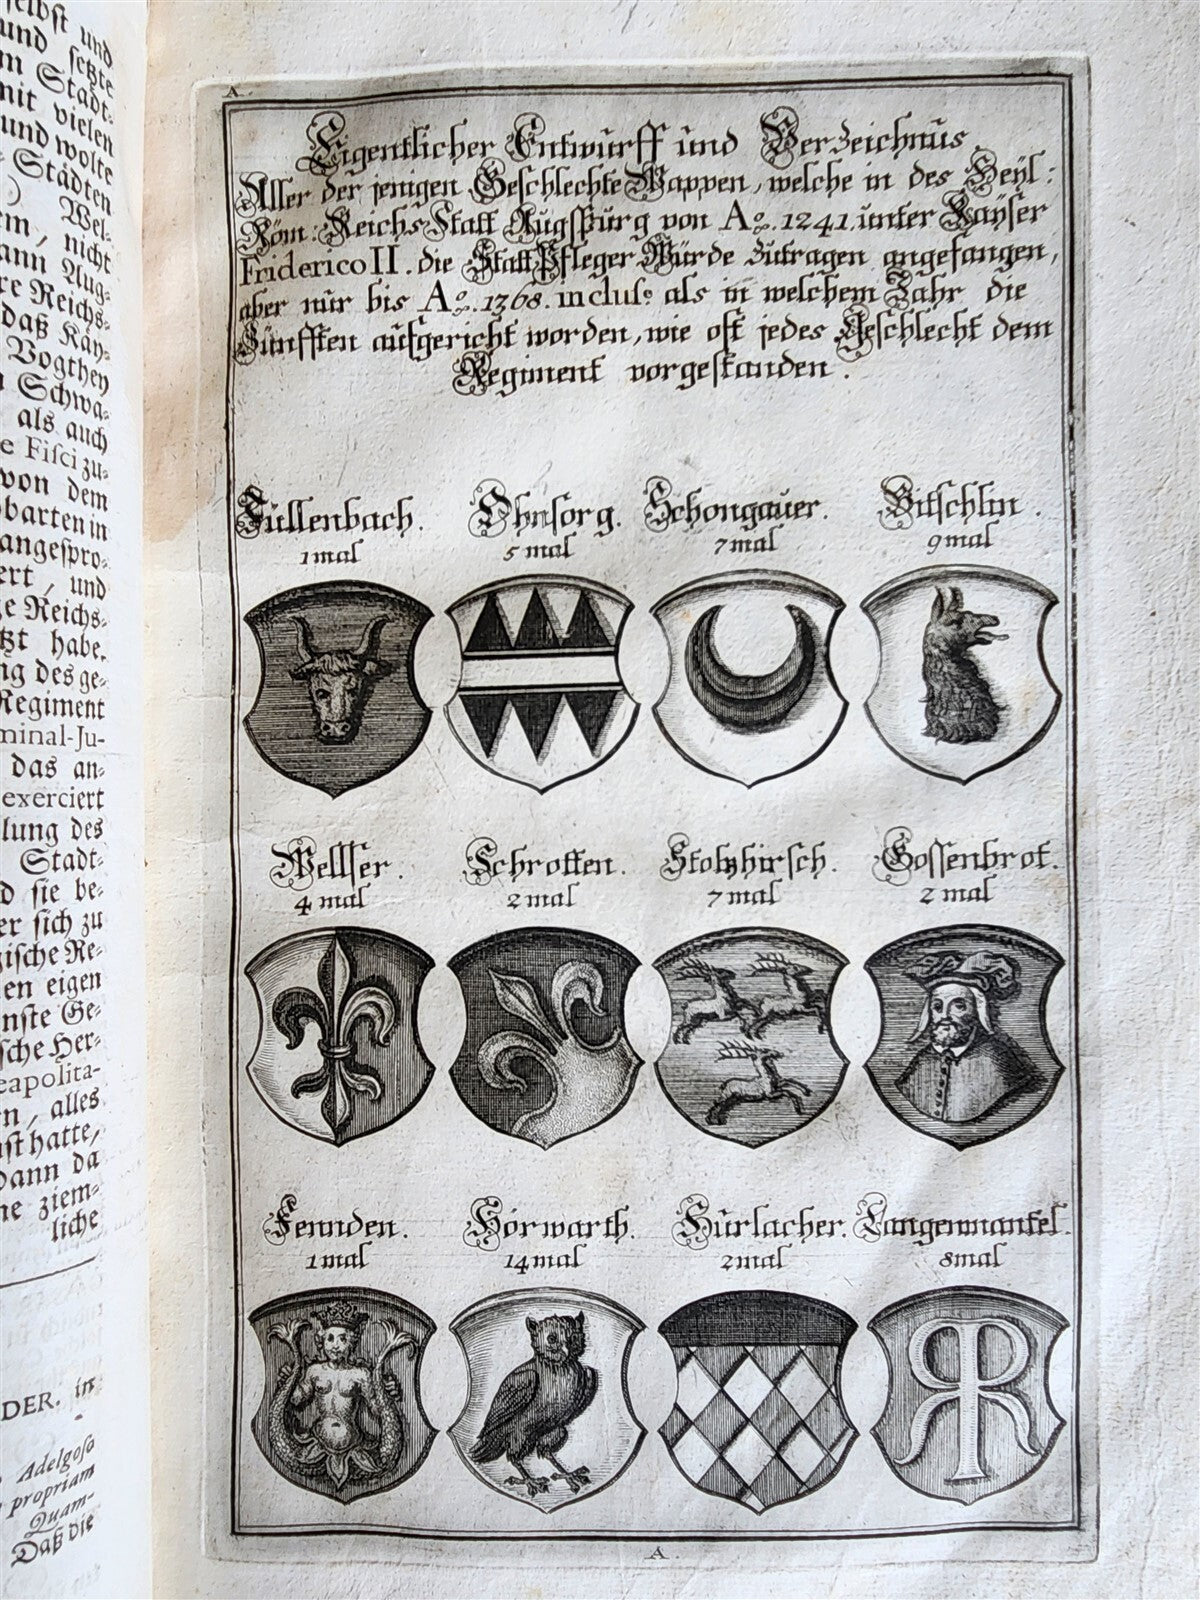 selbst und
und setzte
m Stadt-
mit vielen
und wolte
Städten
) Wel-
em, nicht
ann Aug-
re Reichs-
daß Käy-
Vogthey
Schwa-
als auch
e Fisci zu-
von dem
obarten in
angespro-
ert, und
ge Reichs-
tzt habe.
ng des ge-
Regiment
minal-Ju-
das an-
exerciert
lung des
Stadt-
d sie be-
er sich zu
zische Re-
en eigen
nste Ge-
sche Her-
eapolita-
n, alles
nst hatte,
dann da
ne ziem-
liche
DER. in
Adelgoso
propriam
Quam-
Daß die
A.
Eigentlicher Entwurff und Verzeichnus
Aller der jenigen Geschlechte Wappen, welche in des Heyl:
Röm: Reichs Statt Augspurg von Ao. 1241. unter Kayser
Friderico II. die Statt Pfleger Würde zutragen angefangen,
aber nur bis Ao. 1368. inclus: als in welchem Jahr die
Zünfften aufgericht worden, wie oft jedes Geschlecht dem
Regiment vorgestanden.
Füllenbach. Ohnsorg. Schongauer. Bitschlin.
1 mal 5 mal 7 mal 9 mal
Wellser. Schrotten. Stolzhirsch. Gossenbrot.
4 mal 2 mal 7 mal 2 mal
Fennden. Hörwarth. Hurlacher. Langenmantel.
1 mal 14 mal 2 mal 8 mal
R
A.